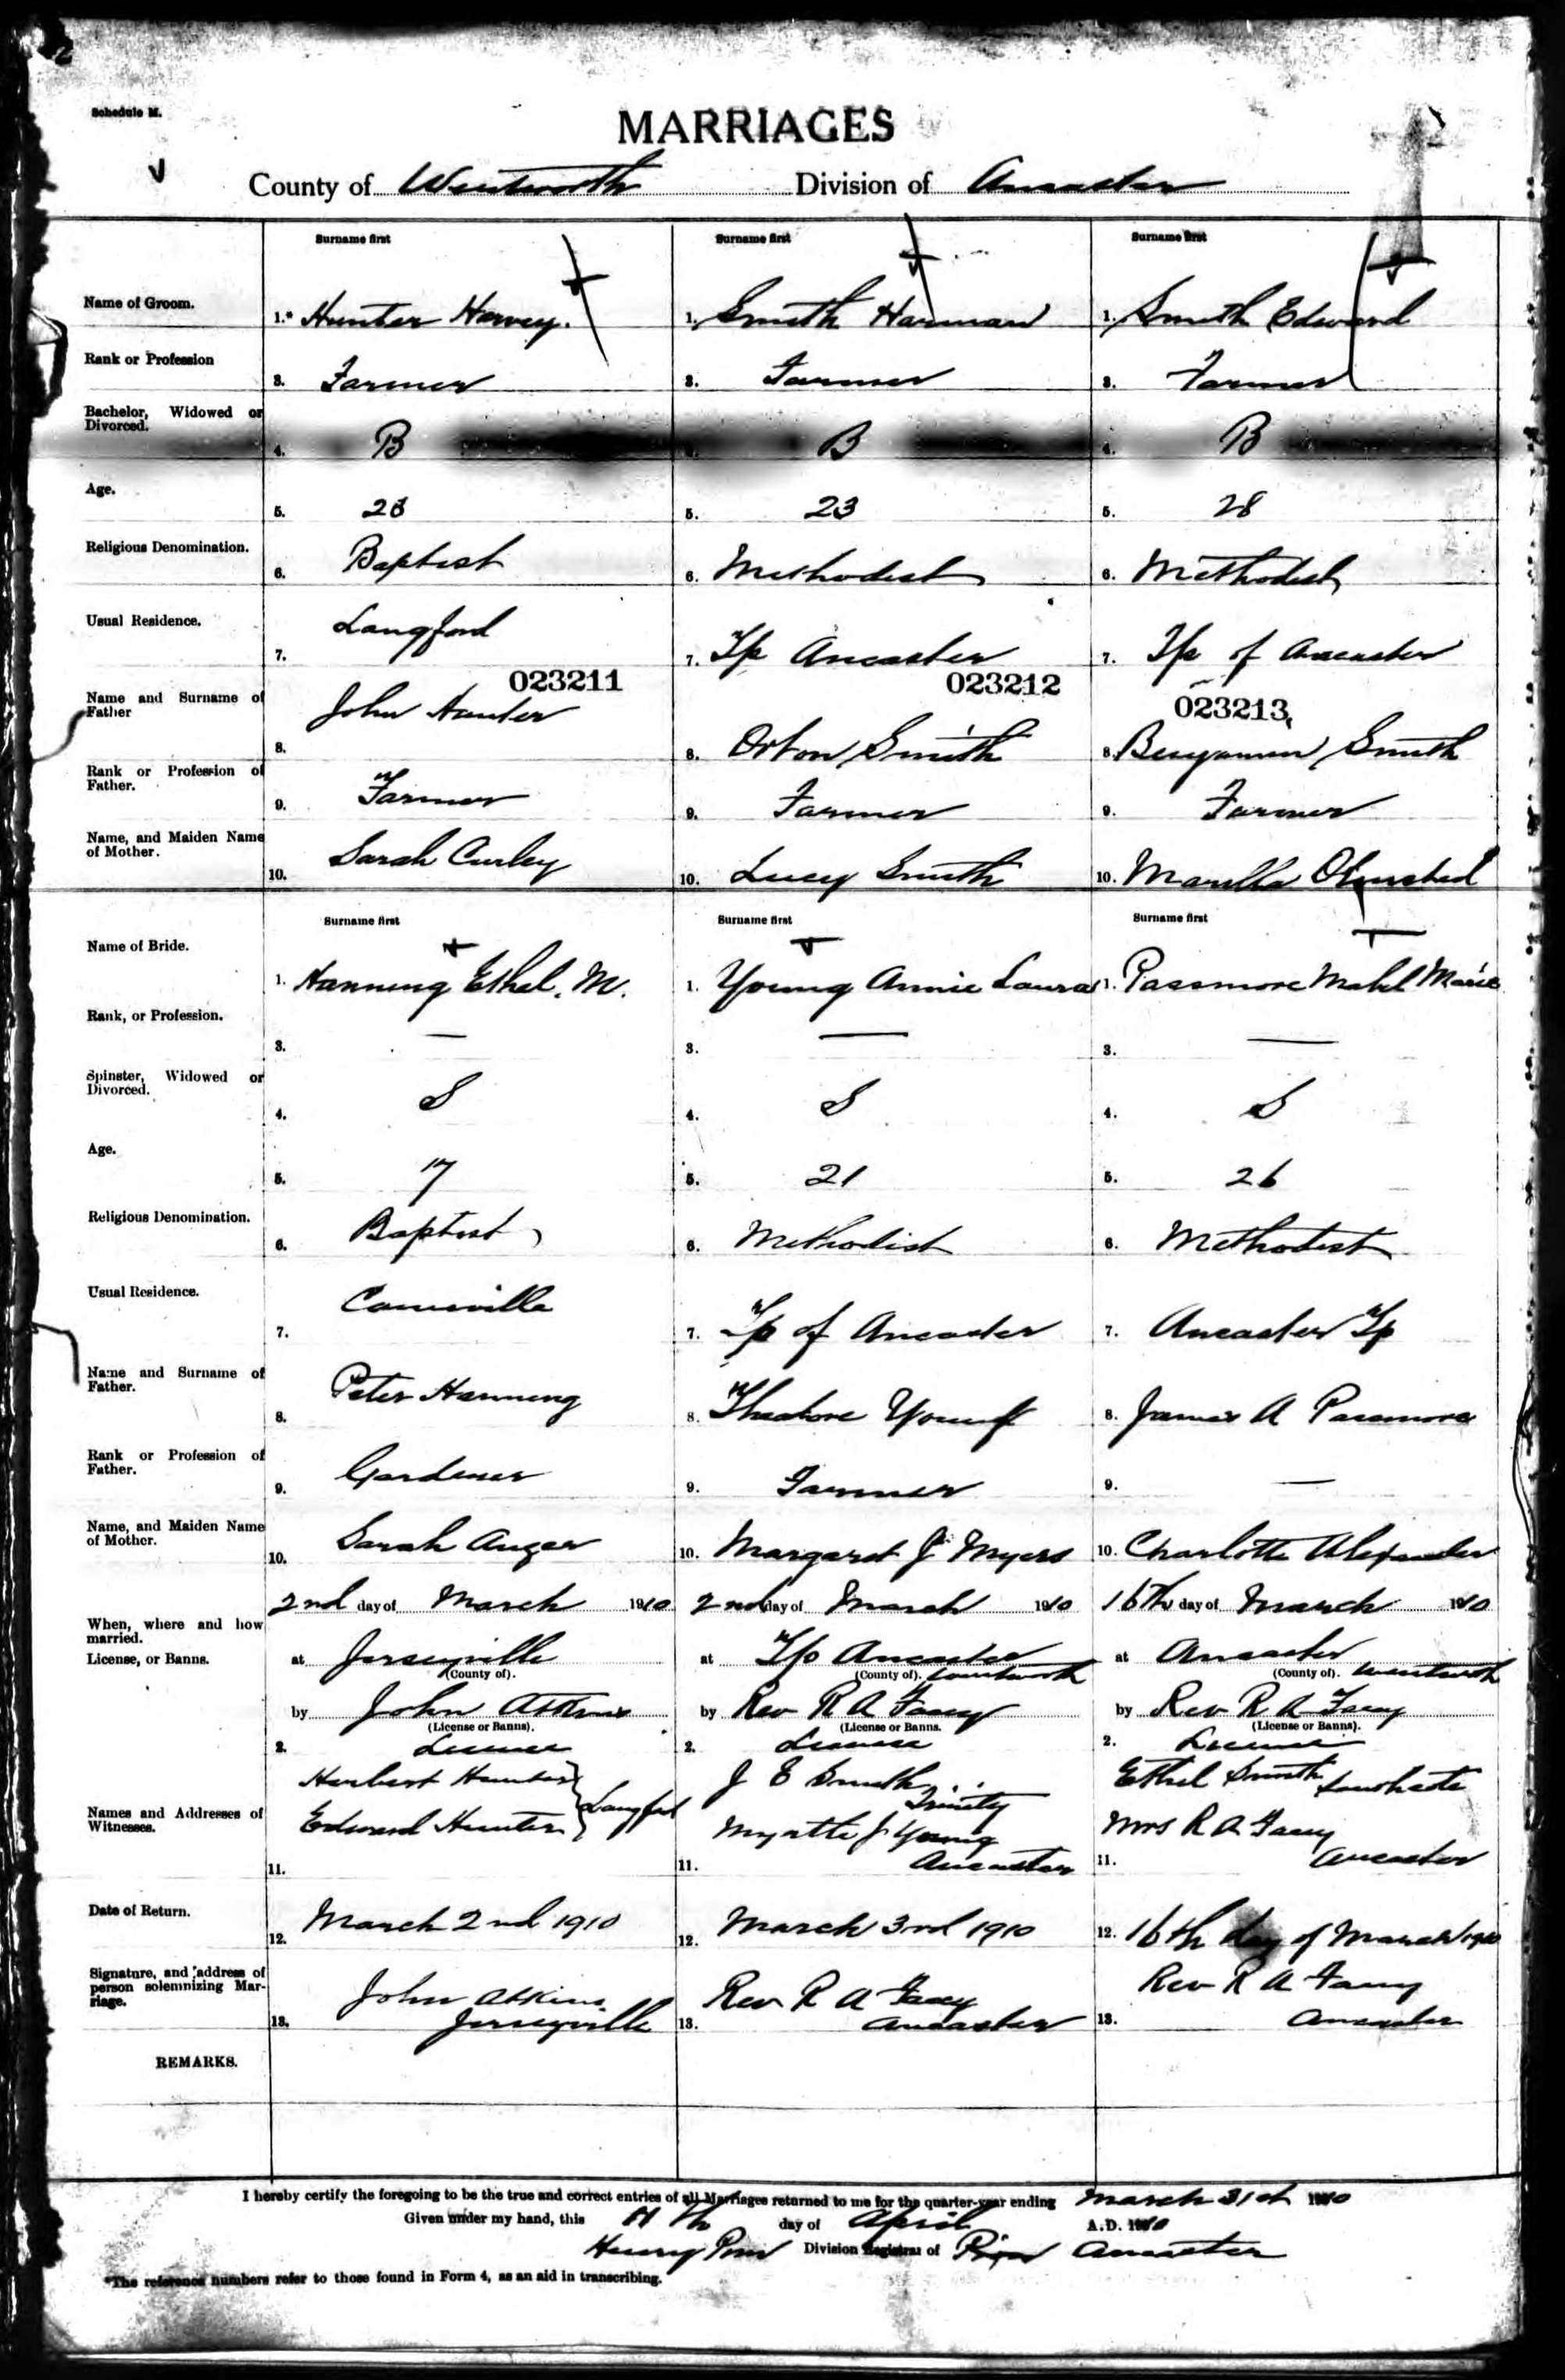 Schedule M.
MARRIAGES
County of Wentworth Division of Ancaster
Surname first Surname first Surname first
Name of Groom. 1.* Hunter Harvey. 1. Smith Harman 1. Smith Edward
Rank or Profession 3. Farmer 3. Farmer 3. Farmer
Bachelor, Widowed or Divorced. 4. B B 4. B
Age. 5. 23 5. 23 5. 28
Religious Denomination. 6. Baptist 6. Methodist 6. Methodist
Usual Residence. 7. Langford 7. Tp Ancaster 7. Tp of Ancaster
023211 023212 023213
Name and Surname of Father 8. John Hunter 8. Orton Smith 8. Benjamin Smith
Rank or Profession of Father. 9. Farmer 9. Farmer 9. Farmer
Name, and Maiden Name of Mother. 10. Sarah Curley 10. Lucy Smith 10. Marilla Olmsted
Surname first Surname first Surname first
Name of Bride. 1. Hanning Ethel. M. 1. Young Annie Laura 1. Passmore Mabel Marie
Rank, or Profession. 3. — 3. — 3. —
Spinster, Widowed or Divorced. 4. S 4. S 4. S
Age. 5. 17 5. 21 5. 26
Religious Denomination. 6. Baptist 6. Methodist 6. Methodist
Usual Residence. 7. Cainsville 7. Tp of Ancaster 7. Ancaster Tp
Name and Surname of Father. 8. Peter Hanning 8. Theodore Young 8. James A Passmore
Rank or Profession of Father. 9. Gardener 9. Farmer 9. —
Name, and Maiden Name of Mother. 10. Sarah Anger 10. Margaret J Myers 10. Charlotte Alexander
When, where and how married. 2nd day of March 1910 2nd day of March 1910 16th day of March 1910
License, or Banns. at Jerseyville at Tp Ancaster at Ancaster
(County of). (County of). Wentworth (County of). Wentworth
by John Atkins by Rev R A Facey by Rev R A Facey
(License or Banns). (License or Banns. (License or Banns).
2. License 2. License 2. License
Herbert Hunter J E Smith Ethel Smith
Langford Trinity
Names and Addresses of Witnesses. Edward Hunter Myrtle J Young Mrs R A Facey
11. 11. Ancaster 11. Ancaster
Date of Return. 12. March 2nd 1910 12. March 3rd 1910 12. 16th day of March 1910
Signature, and address of person solemnizing Marriage. John Atkins Rev R A Facey Rev R A Facey
13. Jerseyville 13. Ancaster 13. Ancaster
REMARKS.
I hereby certify the foregoing to be the true and correct entries of all Marriages returned to me for the quarter-year ending March 31st 1910
Given under my hand, this day of April A.D. 1910
Henry Division Registrar of Ancaster
*The reference numbers refer to those found in Form 4, as an aid in transcribing.